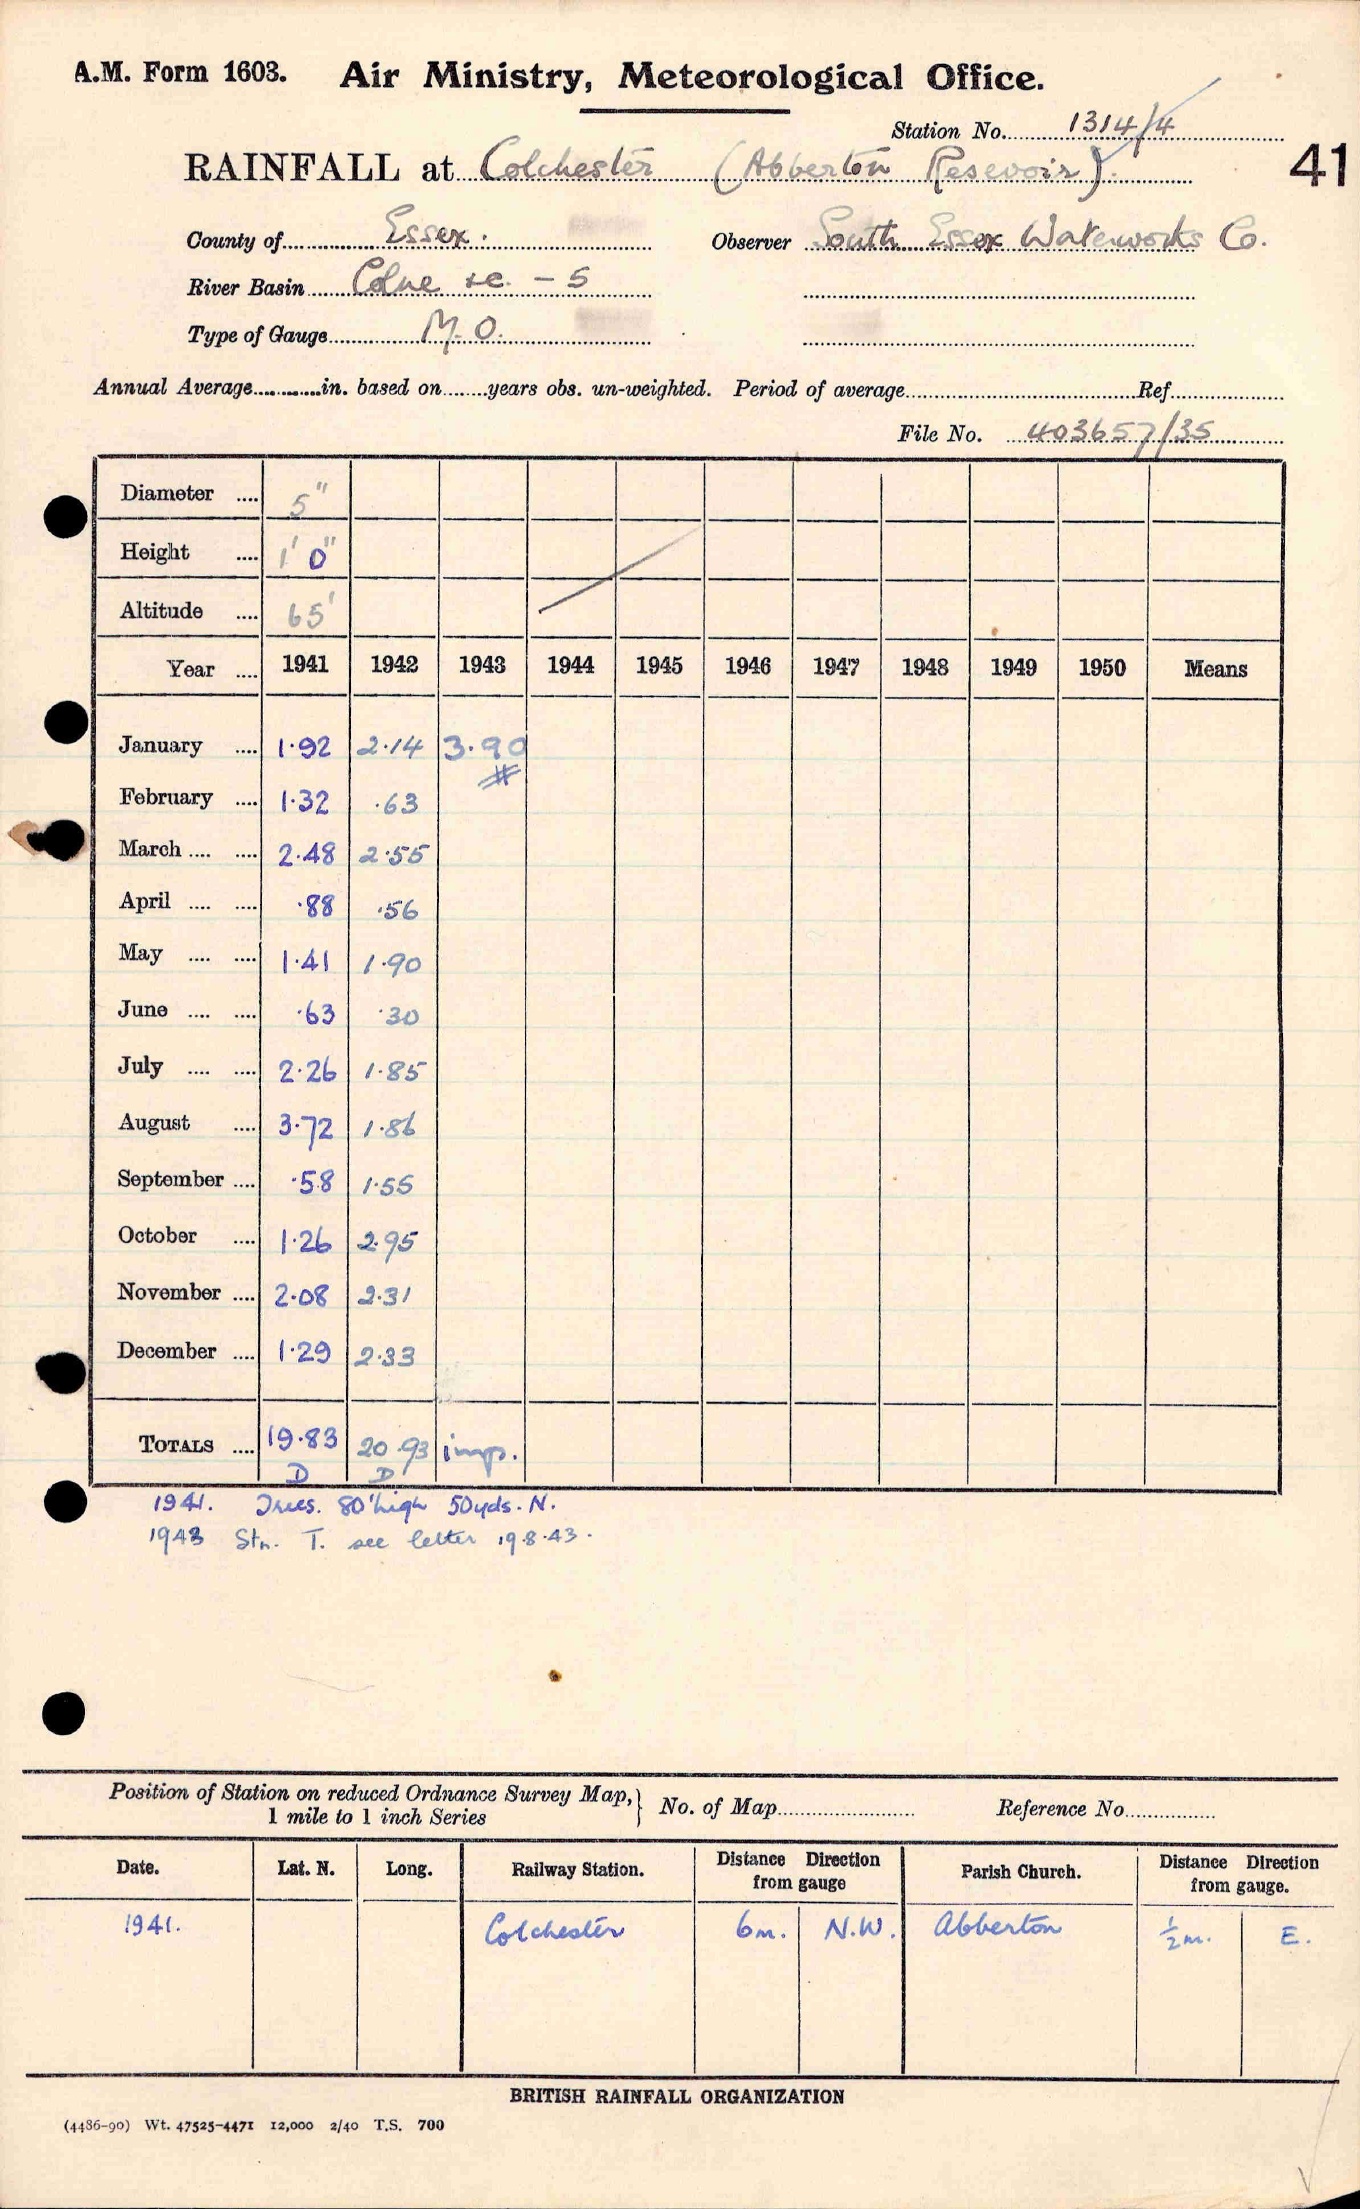 A.M. Form 1603. Air Ministry, Meteorological Office.
Station No. 1314/4
RAINFALL at Colchester (Abberton Resevoir)
41
County of Essex. Observer South Essex Waterworks Co.
River Basin Colne &c. - 5
Type of Gauge M.O.
Annual Average............in. based on........years obs. un-weighted. Period of average........Ref........
File No. 403657/35
Diameter .... 5"
Height .... 1' 0"
Altitude .... 65'
Year .... 1941 1942 1943 1944 1945 1946 1947 1948 1949 1950 Means
January .... 1·92 2·14 3·90
#
February .... 1·32 ·63
March .... .... 2·48 2·55
April .... .... ·88 ·56
May .... .... 1·41 1·90
June .... .... ·63 ·30
July .... .... 2·26 1·85
August .... 3·72 1·86
September .... ·58 1·55
October .... 1·26 2·95
November .... 2·08 2·31
December .... 1·29 2·33
TOTALS .... 19·83 20·93 imp.
D D
1941. Trees. 80' high 50yds. N.
1943 Stn. T. see letter 19·8·43.
Position of Station on reduced Ordnance Survey Map,} No. of Map........ Reference No........
1 mile to 1 inch Series
Date. Lat. N. Long. Railway Station. Distance Direction from gauge Parish Church. Distance Direction from gauge.
1941. Colchester 6m. N.W. Abberton ½m. E.
BRITISH RAINFALL ORGANIZATION
(4486-90) Wt. 47525-4471 12,000 2/40 T.S. 700